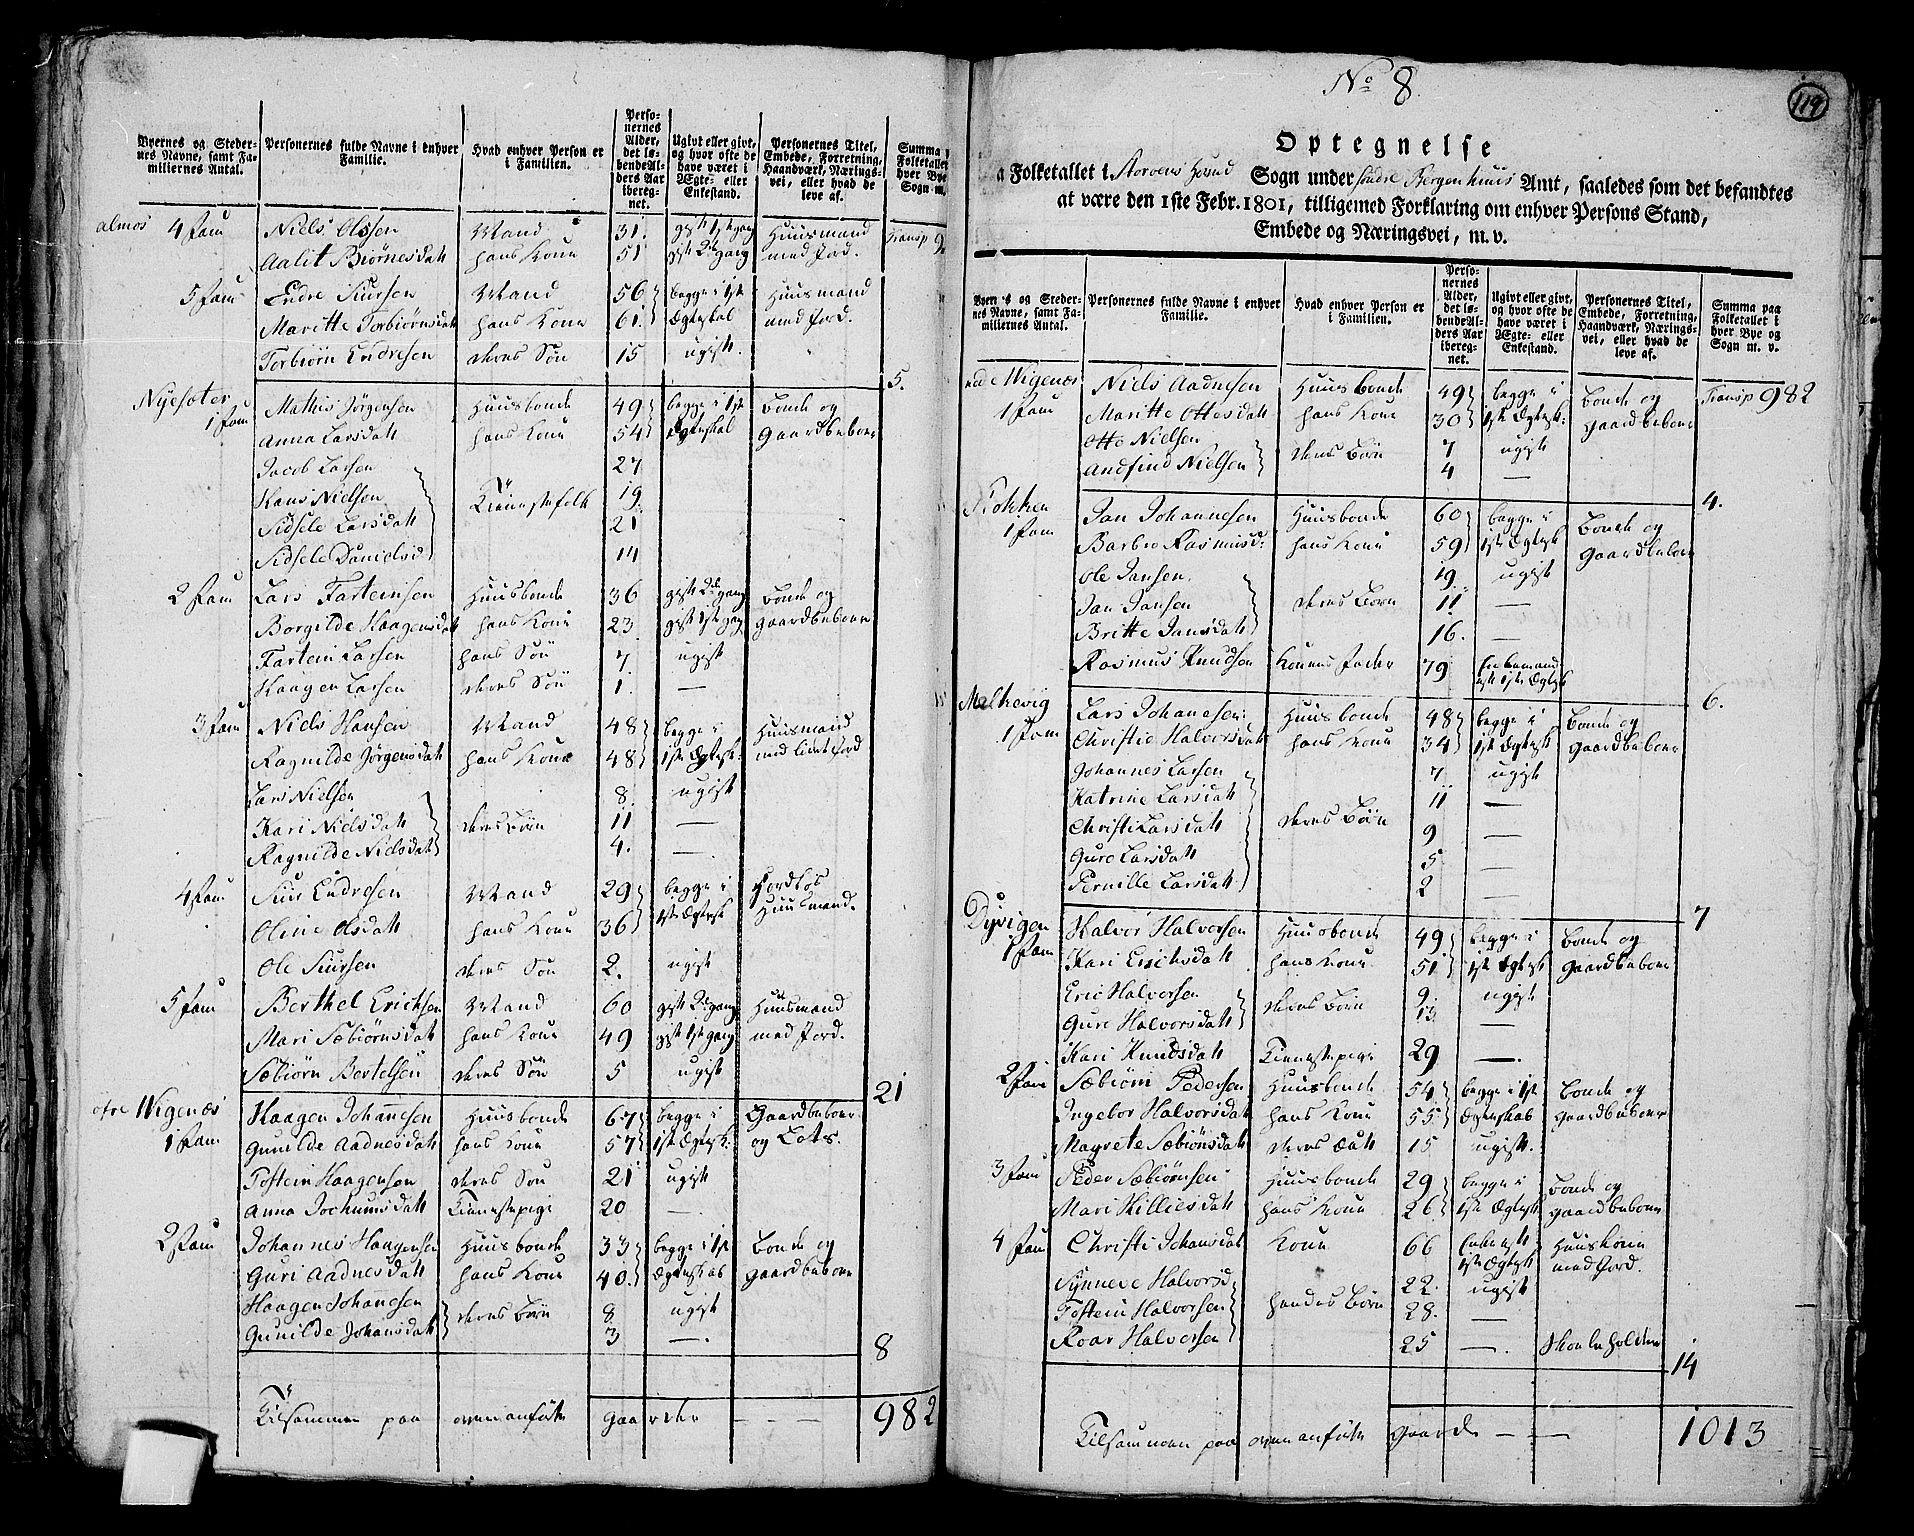 Byernes og Steder-
nes Navne, samt Fa-
miliernes Antal.
Personernes fulde Navne i enhver
Familie.
Hvad enhver Person er
i Familien.
Perso-
nernes
Alder,
det lø-
bende Al-
ders Aar
ibereg-
net.
Ugivt eller givt,
og hvor ofte de
have været i
Ægte- eller
Enkestand.
Personernes Titel,
Embede, Forretning,
Haandværk, Nærings-
vei, eller hvad de
leve af.
Summa
Folketallet
hver Bye
Sogn m.
almos 4 Fam Niels Olssen Mand 31. gift 1ste gang Huusmand Transp
Aalit Biørnesdatt hans Kone 51 gift 2den gang med Jord.
5 Fam Endre Siursen Mand 56 begge i 1ste Huusmand
Maritte Torbiørnsdatt hans Kone 61. Ægteskab med Jord.
Torbiørn Endresen deres Søn 15 ugift. 5.
Nyesæter Mathis Jørgensen Huusbonde 49 begge i 1ste Bonde og
1 Fam Anna Larsdatt hans Kone 54 Ægteskab Gaardbeboer
Jacob Larsen 27
Hans Nielsen Tienestefolk 19
Sidsele Larsdatt 21
Sidsele Danielsd 14
2 Fam Lars Farteinsen Huusbonde 36 gift 2den gang Bonde og
Borgilde Haagensdatt hans Kone 23 gift 1ste gang Gaardbeboer
Fartein Larsen hans Søn 7. ugift
Haagen Larsen deres Søn 1. —
3 Fam Niels Hansen Mand 48 begge i Huusmand
Ragnilde Jørgensdatt hans Kone 48 1ste Ægtesk. med lidet Jord
Lars Nielsen 8. ugift
Kari Nielsdatt deres Børn 11 —
Ragnilde Nielsdatt 4. —
4 Fam Siur Endresen Mand 29 begge i Jordløs
Oline Olsdatt hans Kone 36 1ste Ægtesk Huusmand.
Ole Siursen deres Søn 2. ugift
5 Fam Berthel Ericksen Mand 60 gift 2den gang Huusmand
Mari Sæbiørnsdatt hans Kone 49 gift 1ste gang med Jord.
Sæbiørn Bertelsen deres Søn 5 ugift 21
øfre Wigenæs Haagen Johanesen Huusbonde 67 begge i Gaardbeboer
1 Fam Gunilde Aadnesdatt hans Kone 57 1ste Ægtesk. og Lots.
Tostein Haagensen deres Søn 21 ugift
Anna Jochumsdatt Tienestepige 20 —.
2 Fam Johannes Haagensen Huusbonde 33 begge i 1ste Bonde og
Guri Aadnesdatt hans Kone 40. Ægteskab Gaardbeboer
Haagen Johanesen deres Børn 8 ugift
Gunilde Johansdatt 3 —. 8
Tilsammen paa ovenanførte Gaarder — — — 982
No 8.
119
Optegnelse
Folketallet i Storøens Hoved Sogn under Søndre Bergenhuus Amt, saaledes som det befandtes
at være den 1ste Febr. 1801, tilligemed Forklaring om enhver Persons Stand,
Embede og Næringsvei, m. v.
Byernes og Steder-
nes Navne, samt Fa-
miliernes Antal.
Personernes fulde Navne i enhver
Familie.
Hvad enhver Person er
i Familien.
Perso-
nernes
Alder,
det lø-
bende Al-
ders Aar
ibereg-
net.
Ugivt eller givt,
og hvor ofte de
have været i
Ægte- eller
Enkestand.
Personernes Titel,
Embede, Forretning,
Haandværk, Nærings-
vei, eller hvad de
leve af.
Summa paa
Folketallet i
hver Bye og
Sogn m. v.
Wigenæs Niels Aadnesen Huusbonde 49 begge i Bonde og Transp 982
1 Fam Maritte Ottesdatt hans Kone 30 1ste Ægtesk: Gaardbeboer
Otto Nielsen deres Børn 7 ugift
Andfind Nielsen 4 — 4.
Flokken Jan Johannesen Huusbonde 60 begge i Bonde og
1 Fam Barbro Rasmusd: hans Kone 59 1ste Ægtesk Gaardbeboer
Ole Jansen. 19. ugift
Jan Jansen deres Børn 11 —
Britte Jansdatt 16. —
Rasmus Knudsen Konens Fader 79 Enkemand
efter 1ste Ægtesk 6.
Melkevig Lars Johanesen Huusbonde 48 begge i Bonde og
1 Fam Christie Halvorsdatt hans Kone 34 1ste Ægtesk Gaardbeboer
Johannes Larsen 7 ugift
Katrine Larsdatt 11 —
Christi Larsdatt deres Børn 9 —
Gure Larsdatt 5 —
Pernille Larsdatt 2 — 7
Dyvigen Halvor Halvorsen Huusbonde 49 begge i Bonde og
1 Fam Kari Ericksdatt hans Kone 51 1ste Ægtesk Gaardbeboer
Eric Halvorsen deres Børn 9 ugift
Gure Halvorsdatt 13 —
Kari Knudsdatt Tienestepige 29 —.
2 Fam Sæbiørn Pedersen Huusbonde 54 begge i 1ste Bonde og
Ingebor Halvorsdatt hans Kone 55 Ægteskab Gaardbeboer
Magrete Sæbiørnsdatt deres Datt 15 ugift.
3 Fam Peder Sæbiørnsen Huusbonde 29 begge i Bonde og
Mari Killiesdatt hans Kone 26 1ste Ægtesk Gaardbeboer
4 Fam Christi Johansdat Kone 66 Enke efter Huuskone
1ste Ægtesk med Jord.
Synneve Halvorsd 22. ugift
Tostein Halvorsen hendes Børn 28. —
Roar Halvorsen 25 —. Skoleholder 14
Tilsammen paa ovenanførte Gaarde — — 1013